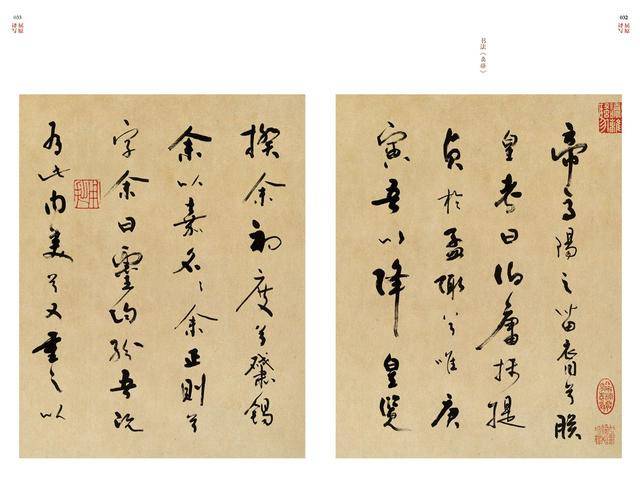 032
屈原
书法《离骚》
帝高陽之苗裔兮朕
皇考曰伯庸攝提
貞於孟陬兮唯庚
寅吾以降皇覽
033
屈原
揆余初度兮肇錫
余以嘉名〻余正則兮
字余曰靈均紛吾既
有此內美兮又重之以